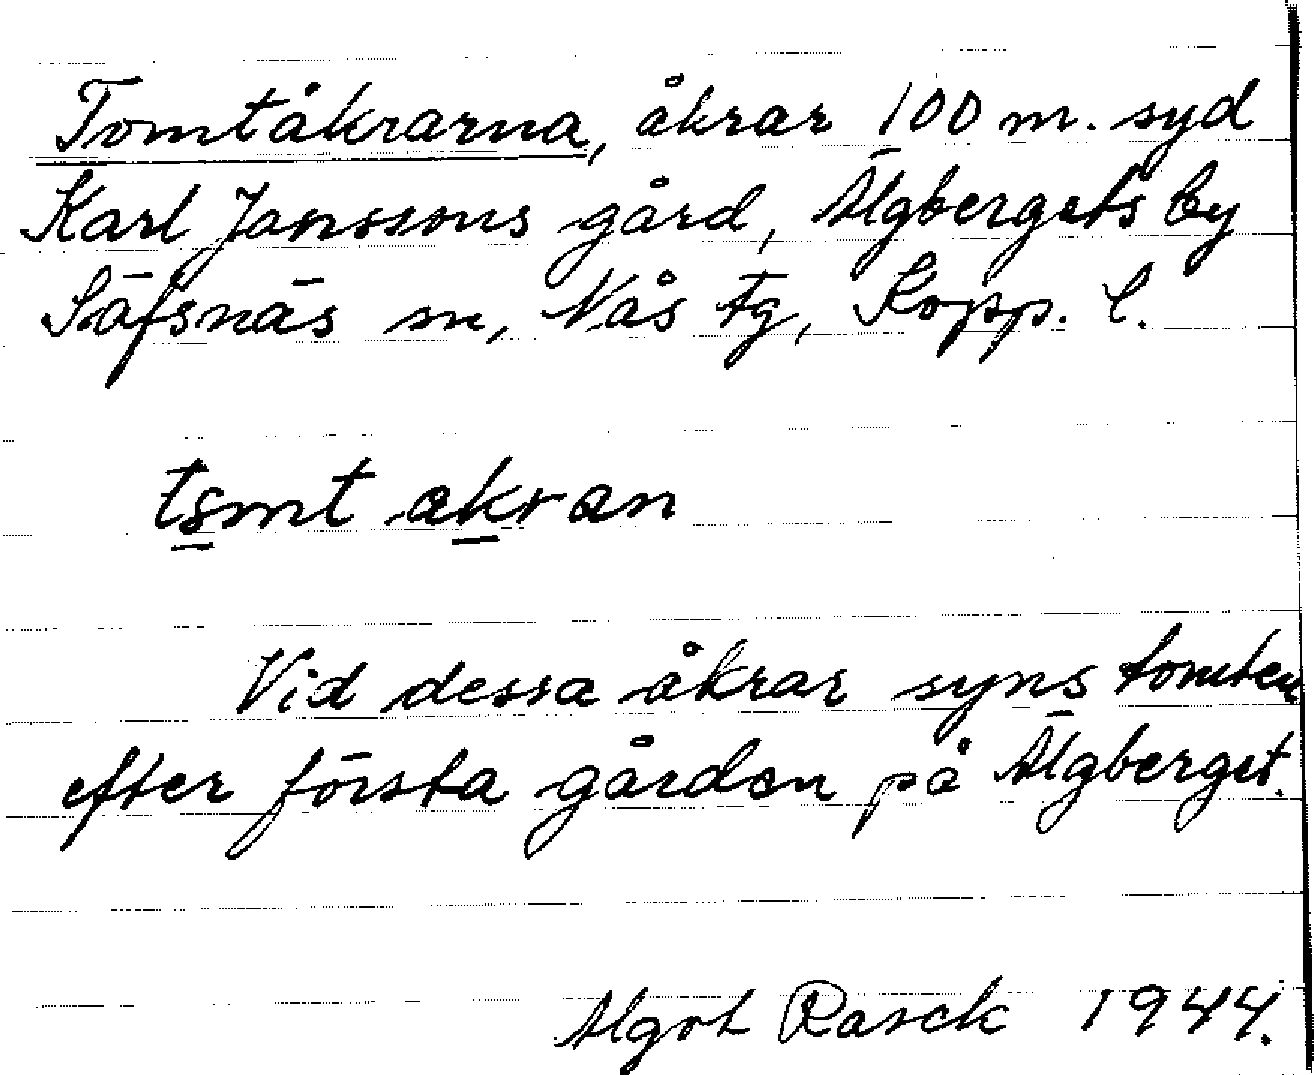 Tomtåkrarna, åkrar 100 m. syd
Karl Janssons gård, Älgbergets by
Säfsnäs sn, Nås tg, Kopp. l.
tsmt akran
Vid dessa åkrar syns tomten
efter första gården på Älgberget.
Algot Rasck 1944.